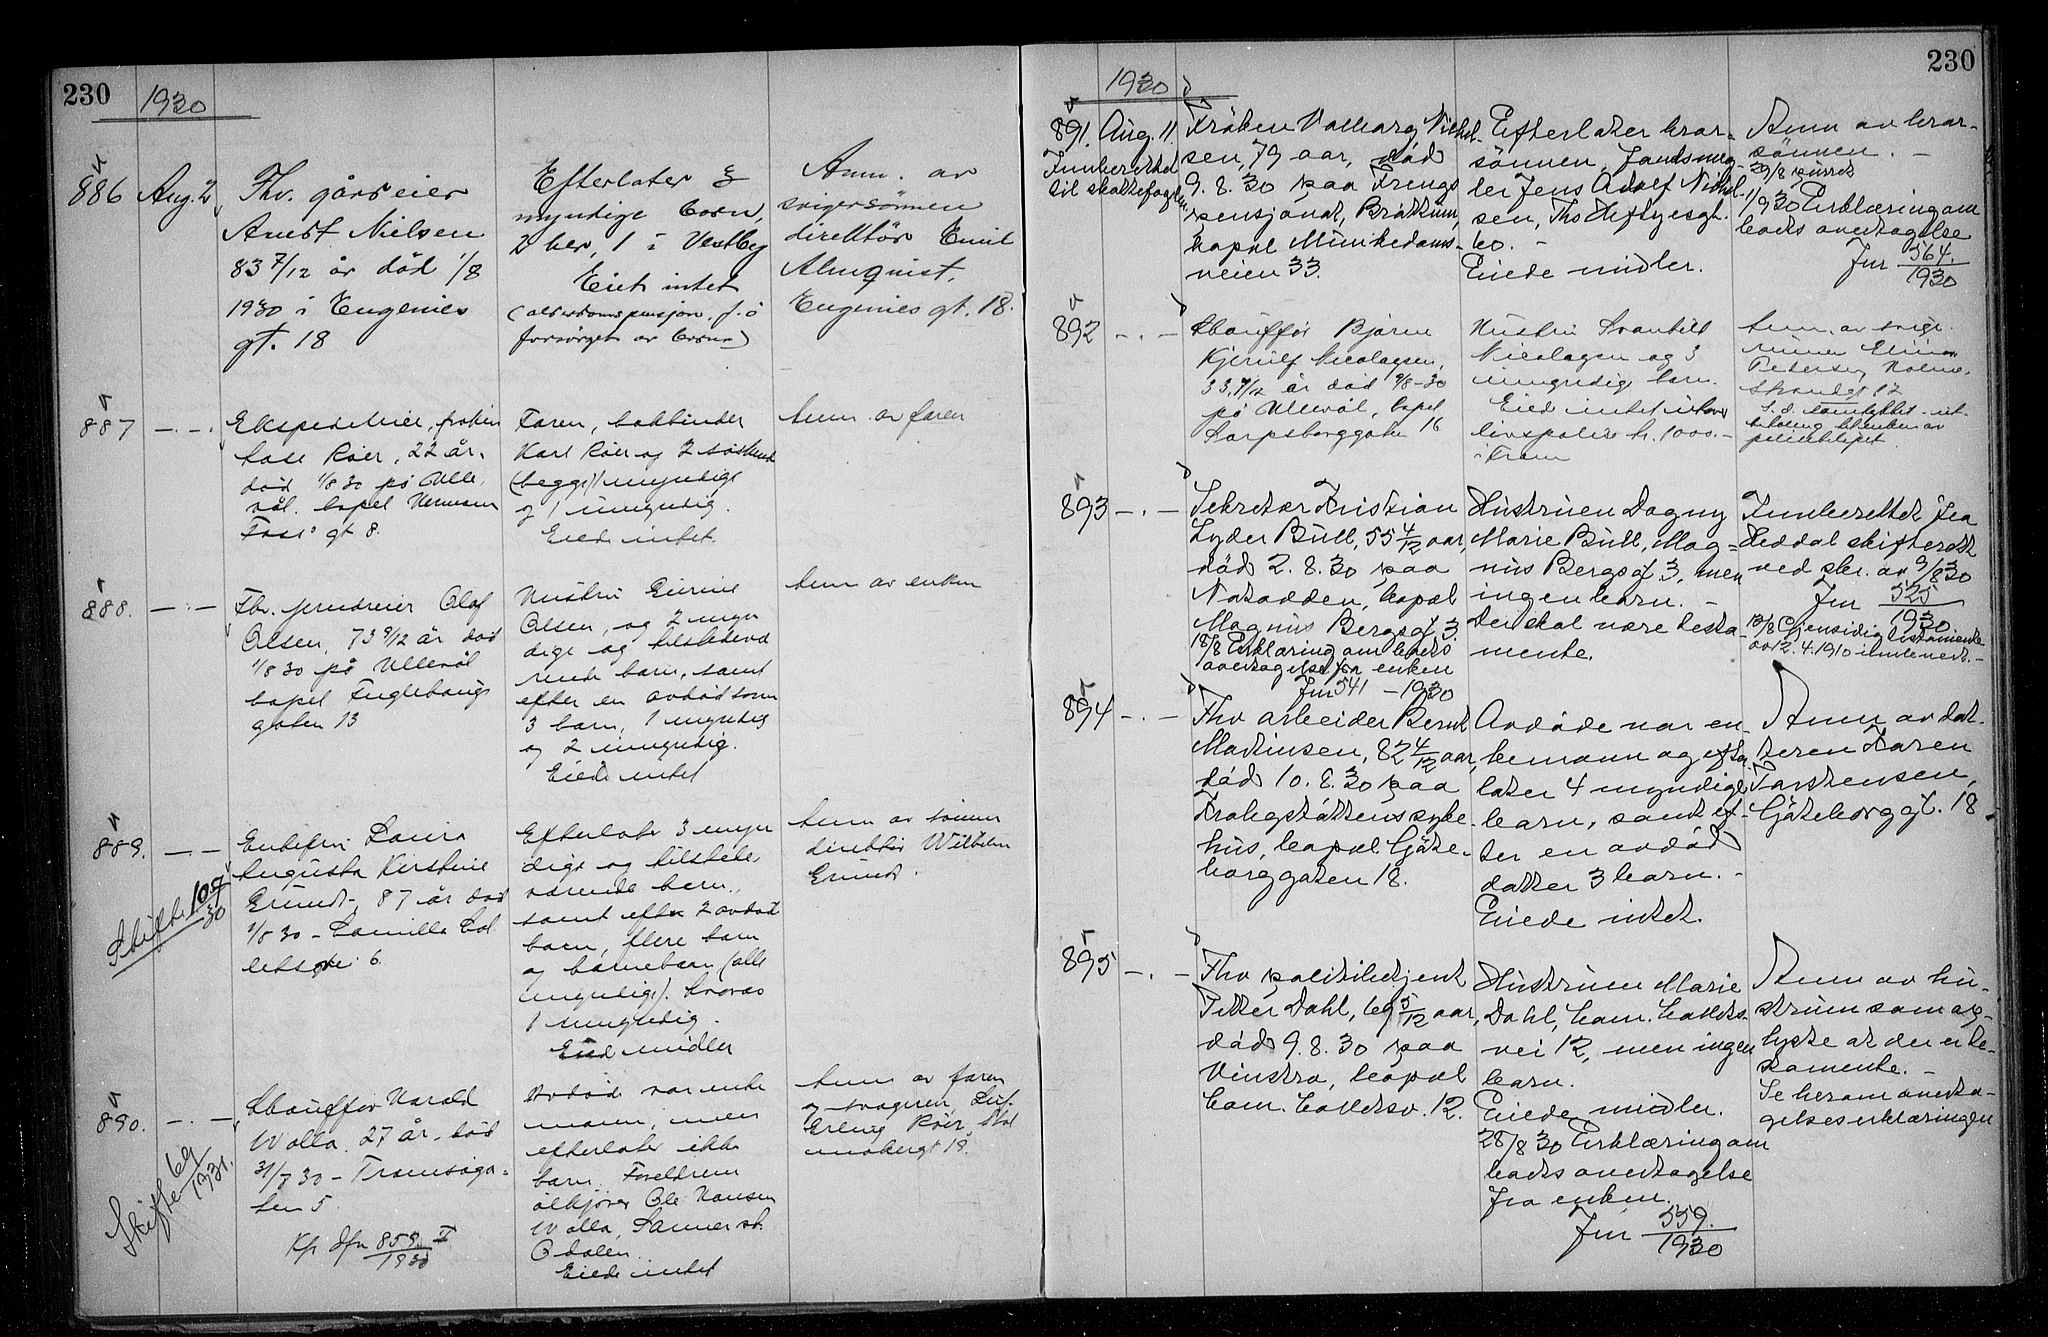 230
1930
886 Aug. 2
Fhv. gårdeier
Arndt Nielsen
83 7/12 år død 1/8
1930 i Eugenies
gt. 18
Efterlater 3
myndige barn,
2 her, 1 i Vestby
Eiet intet
(alderdomspensjon, f.ø
forsørget av barna)
Anm. av
svigersønnen
direktør Emil
Almquist,
Eugenies gt. 18.
887 -.-.
Ekspeditrice, frøken
Røer, 22 år,
død 1/8 30 på Ulle-
vål, bopel Herman
Foss' gt 8.
Faren, bokbinder
Karl Røer og 2 søskend
(begge) myndige
og 1 umyndig.
Eiede intet.
Anm. av faren
888. -.-
Fhv. Olaf
Olsen, 73 9/12 år død
1/8 30 på Ullevål
bopel Fuglehaugs
gaten 13
Hustru
Olsen, og 2 myn
dige og tilstedevæ
rende barn, samt
efter en avdød sønn
3 barn, 1 myndig
og 2 umyndig.
Eiede intet
Anm av enken
889. -.-
Skifte 107/30
Enkefru Laura
Augusta Kirstine
Grundt, 87 år død
30 - Camilla Col
letsvei 6.
Efterlater 3 myn
dige og tilstede
værende barn,
samt efter 2 avdød
barn, flere barn
og barnebarn (alle
myndige).
1 umyndig.
Eied midler
Anm av sønnen
direktør Wilhelm
Grundt.
890. -.-
Skifte 69/1931.
Chauffør Harald
Wolla. 27 år, død
31/7 30 - Tromsøga-
ten 5
Kfr Dfn 859 II/1930
Avdøde var enke
mann, men
efterlater ikke
barn. Foreldrene
ølkjører Ole Hansen
Wolla, Sander st.
Odalen.
Eiede intet
Anm av faren
og svogeren,
Erling Røer,
18.
230
1930
891. Aug. 11.
Innberettet
til skattefogden
Frøken Valborg Nickel-
sen, 79 aar, død
9.8.30 paa Frengs
pensjonat, Brøttum,
bopæl Munkedams-
veien 33.
Efterlater bror-
sønnen,
ler Jens Adolf Nickel-
sen, Ths Heftyesgt.
60. -
Eiede midler.
Anm av bror-
sønnen. -
29/8 purret
1/9 30 Erklæring om
boets overtagelse
Jnr 564./1930
892 -.-
Chauffør Bjarne
Kjerulf Nicolaysen,
33 7/12 år død 9/8-30
på Ullevål, bopel
Sarpsborggaten 16
Hustru Svanhild
Nicolaysen og 3
umyndige barn.
Eied intet utover
livspolise kr. 1000.-
i Fram
Anm. av svige-
rinnen
Petersen, Holme-
strandgt 12
S.d. samtykket ut-
betaling til enken av
polisebeløpet.
893 -.-
Sekretær Kristian
Lyder Bull, 55 4/12 aar,
død 2.8.30 paa
Notodden, bopæl
Magnus Bergsgt 3.
18/8 Erklæring om boets
overtagelse fra enken
Jnr 541 - 1930
Hustruen Dagny
Marie Bull, Mag-
nus Bergsgt 3, men
ingen barn. -
Der skal være testa-
mente.
Innberettet fra
Heddal skifterett
ved skr. av 9/8 30
Jnr 525/1930
18/8 Gjensidig testamente
av 12.4.1910 innlevert. -
894 -.-
Fhv arbeider Bernt
Martinsen, 82 4/12 aar,
død 10.8.30 paa
Krohgstøttens syke-
hus, bopæl Gøte-
borggaten 18.
Avdøde var en-
kemann og efter-
later 4 myndige
barn, samt ef-
ter en avdød
datter 3 barn. -
Eiede intet.
Anm av dat-
teren Karen
Torstensen,
Gøteborggt. 18.
895 -.-
Fhv politibetjent
Petter Dahl, 69 5/12 aar,
død 9.8.30 paa
Vinstra, bopæl
Cam. Colletsv. 12.
Hustruen Marie
Dahl, Cam. Collets-
vei 12, men ingen
barn.
Eiede midler.
28/8 30 Erklæring om
boets overtagelse
fra enken.
Jnr 559./1930
Anm av hu-
struen som op-
lyste at der er te-
stamente. -
Se herom overta-
gelseserklæringen